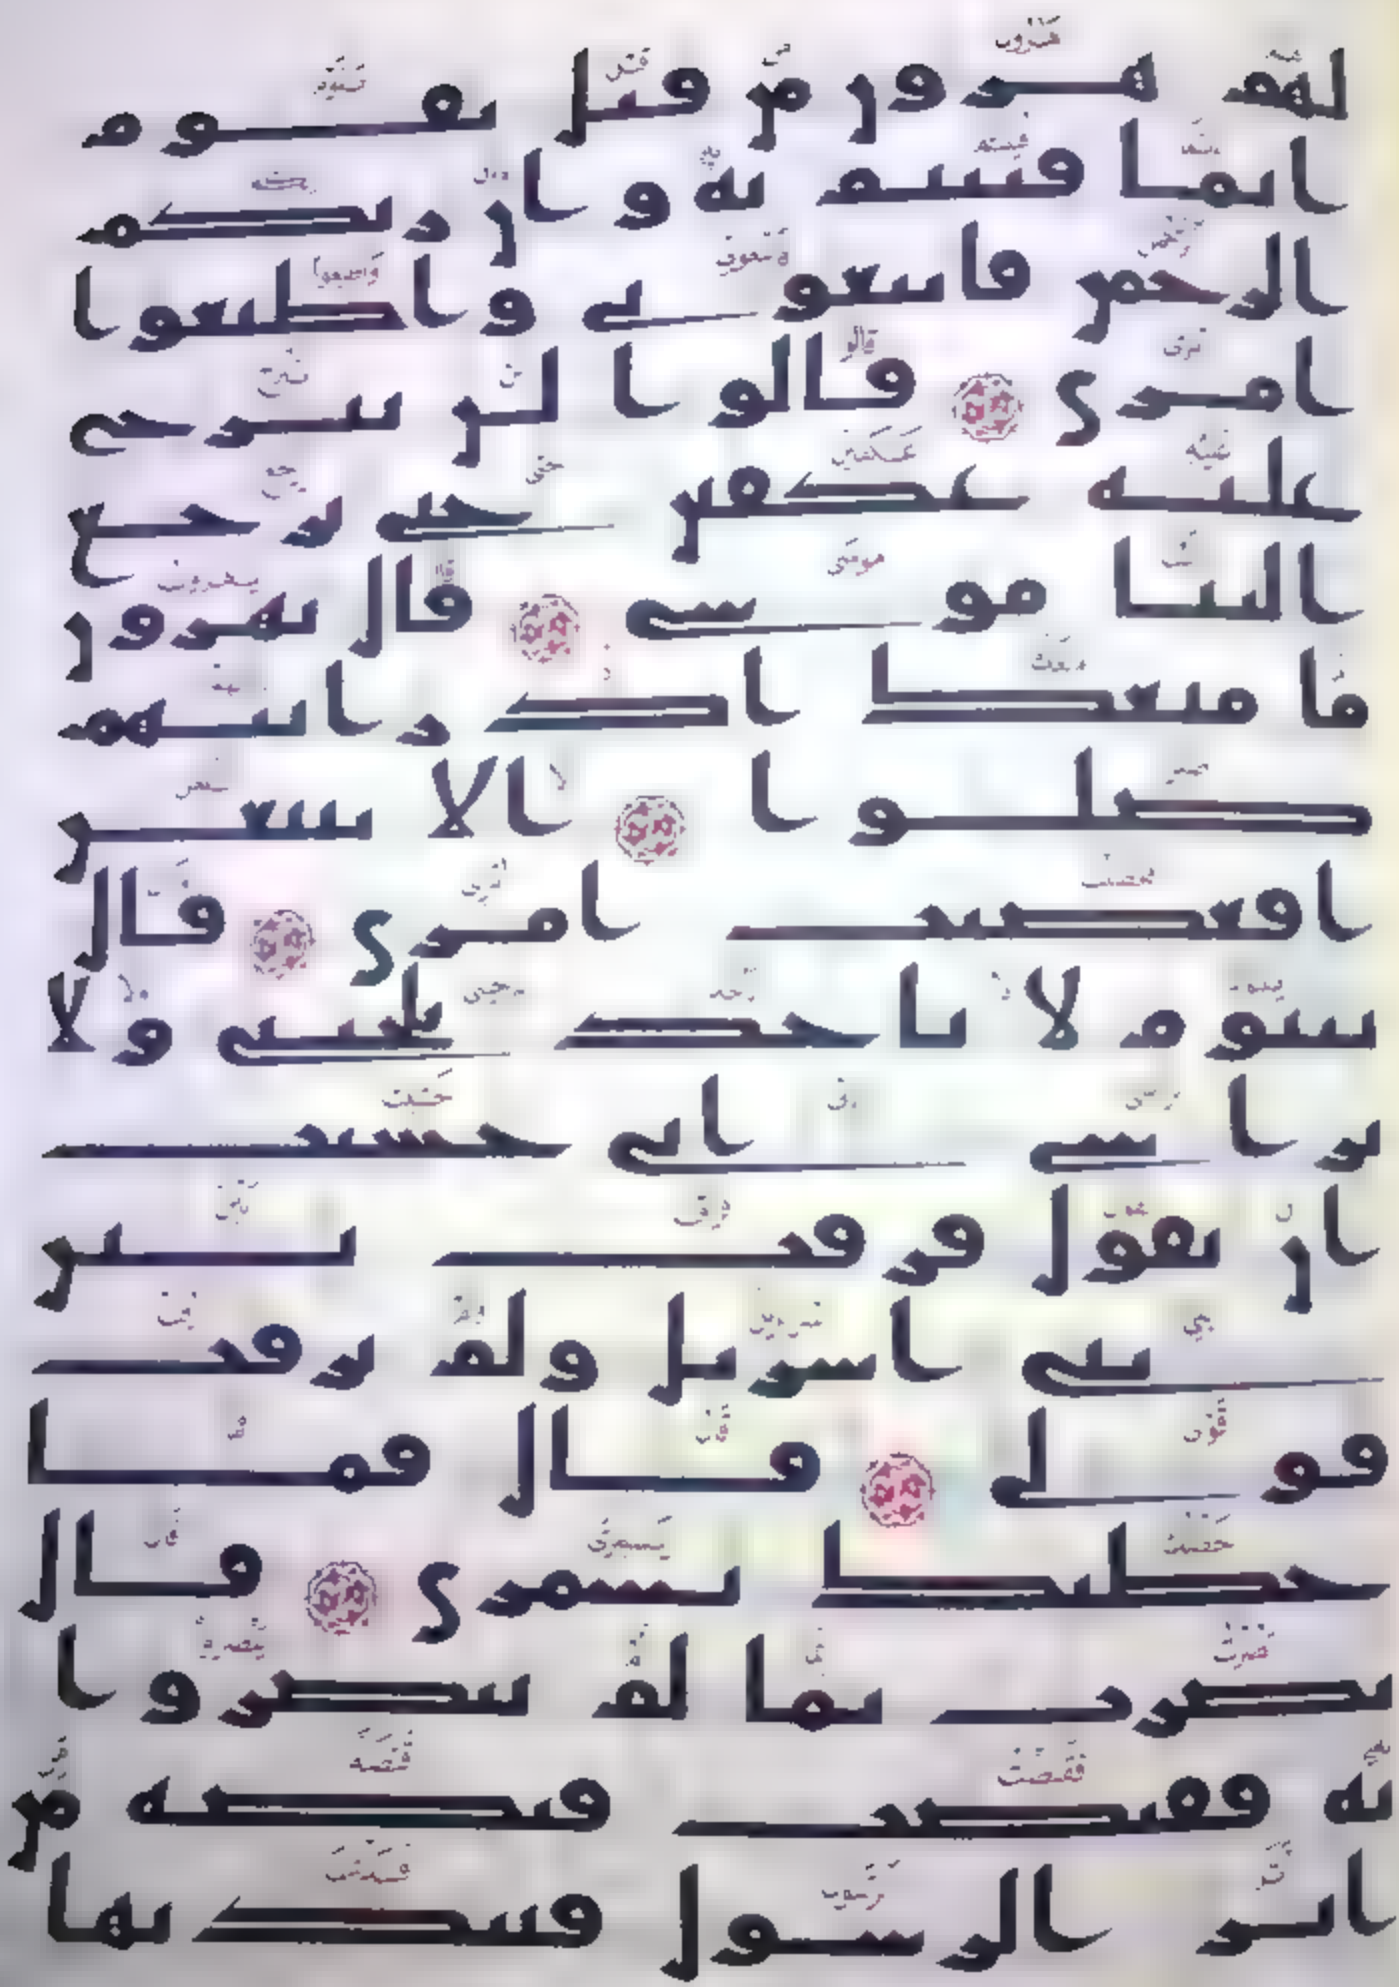 لهم هرون من قبل يقوم
انما فتنتم به وان ربكم
الرحمن فاتبعوني واطيعوا
امري قالوا لن نبرح
عليه عكفين حتى يرجع
الينا موسى قال يهرون
ما منعك اذ رايتهم
ضلوا الا تتبعن
افعصيت امري قال
يبنوم لا تاخذ بلحيتي ولا
براسي اني خشيت
ان تقول فرقت بين
بني اسريل ولم ترقب
قولي قال فما
خطبك يسمري قال
بصرت بما لم يبصروا
به فقبضت قبضة من
اثر الرسول فنبذتها